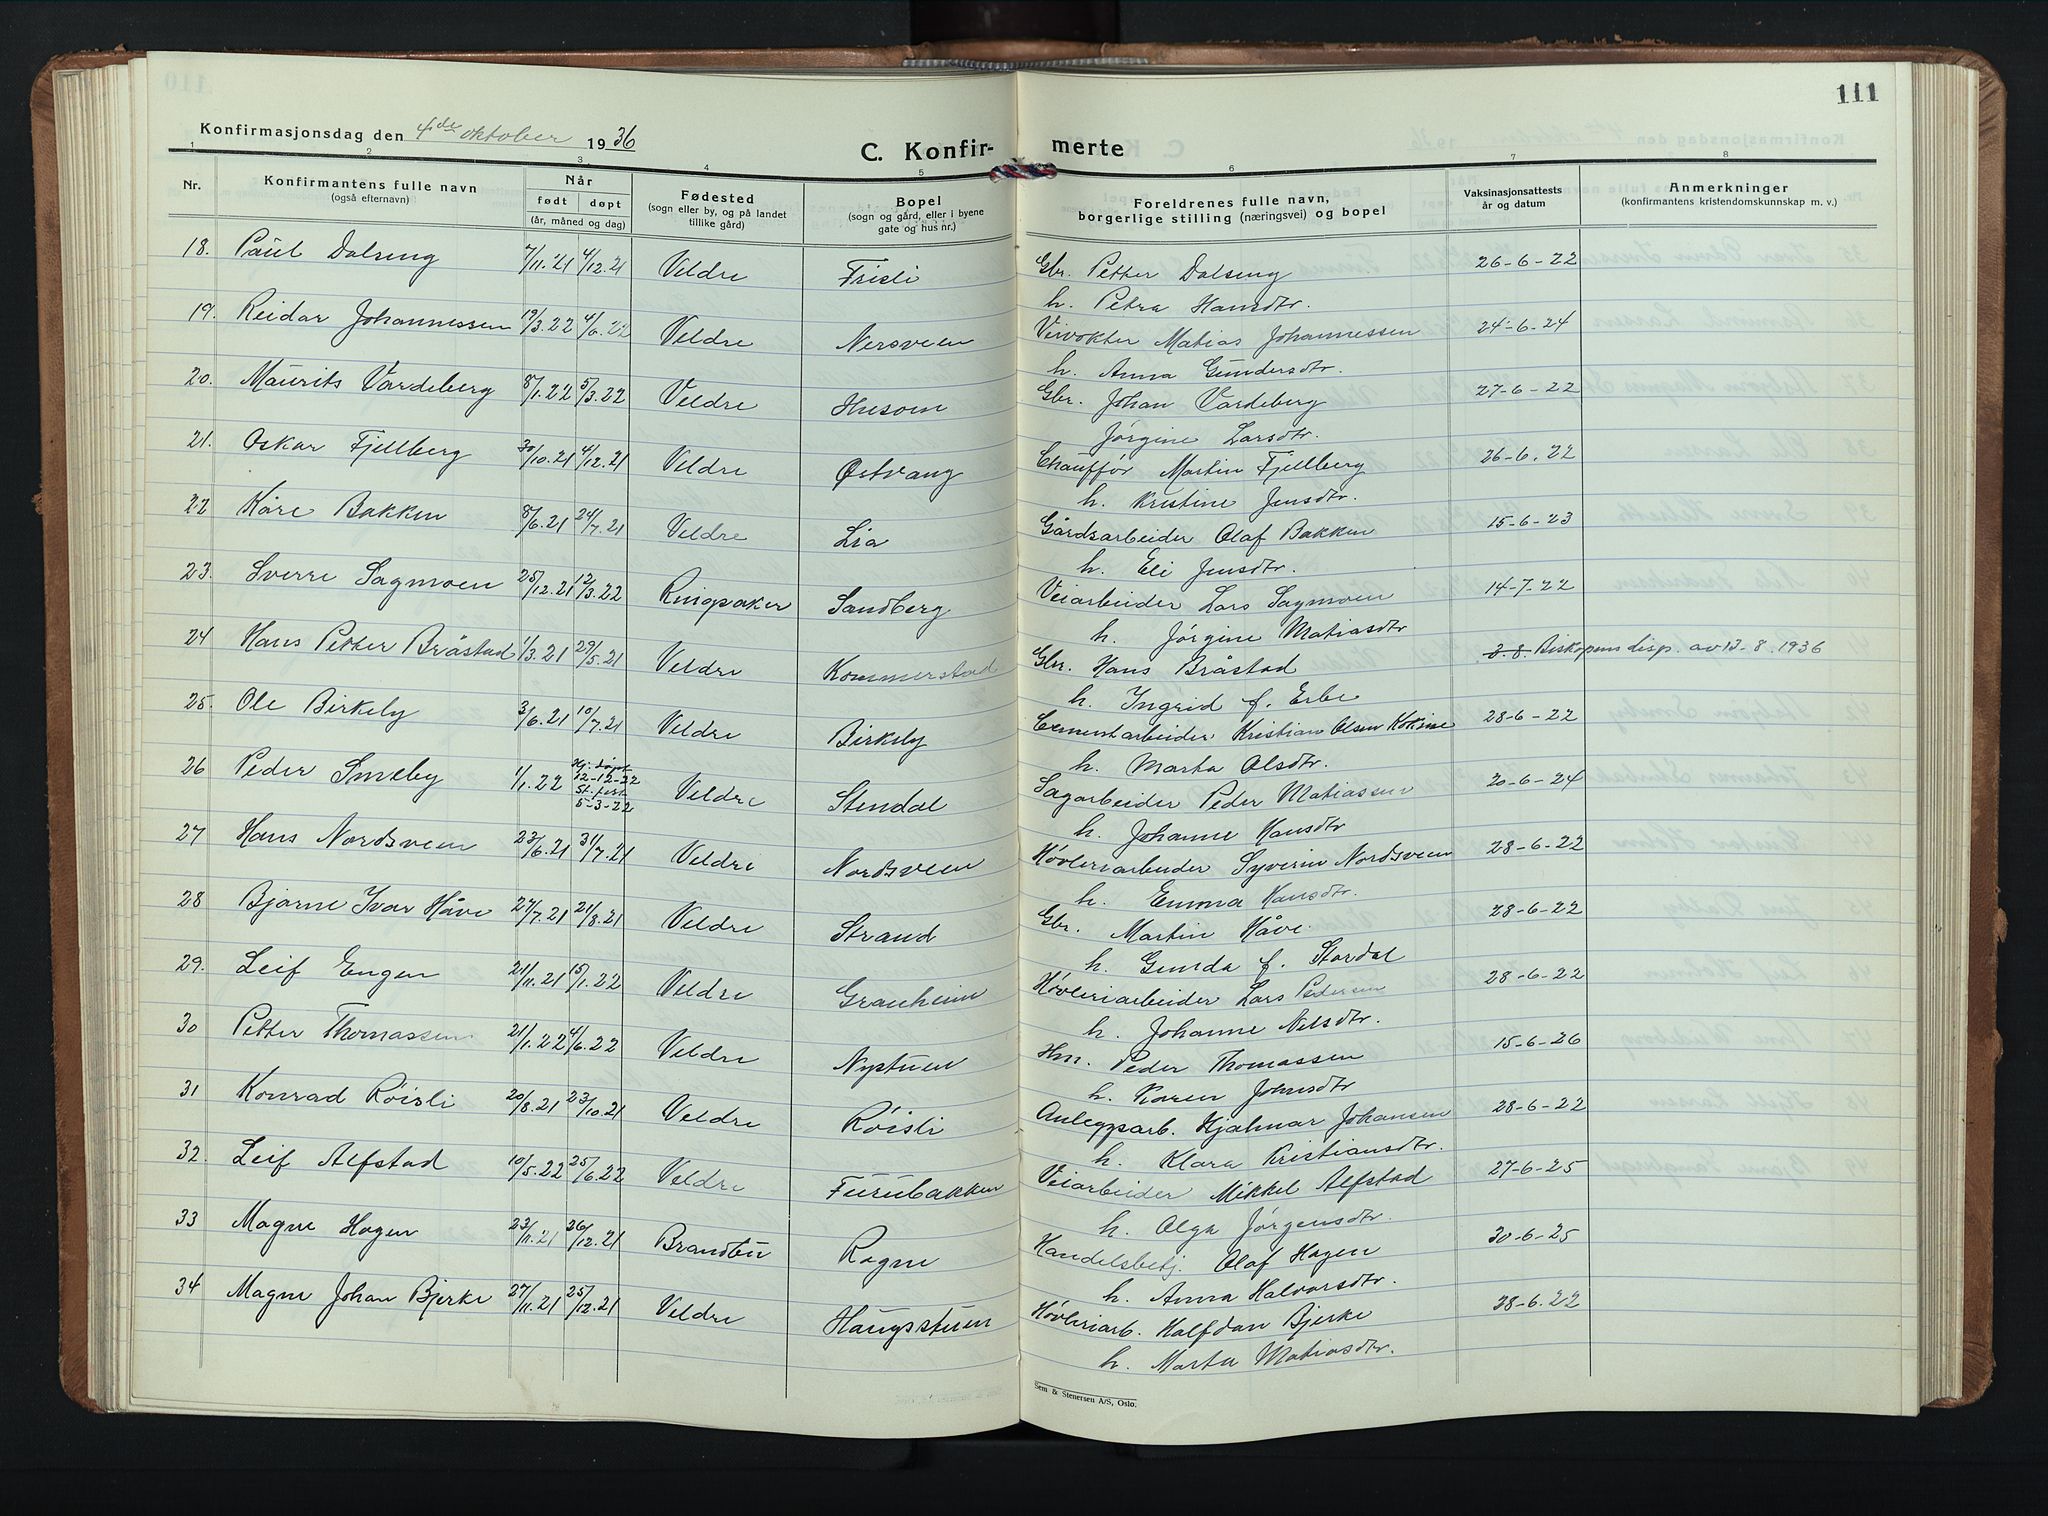 111
Konfirmasjonsdag den 4de oktober 1936
C. Konfir- merte
1 2 3 4 5 6 7 8
Nr.
Konfirmantens fulle navn
(også efternavn)
Når
født døpt
(år, måned og dag)
Fødested
(sogn eller by, og på landet
tillike gård)
Bopel
(sogn og gård, eller i byene
gate og hus nr.)
Foreldrenes fulle navn,
borgerlige stilling (næringsvei) og bopel
Vaksinasjonsattests
år og datum
Anmerkninger
(konfirmantens kristendomskunnskap m. v.)
18. Paul Dalseng 7/11.21 4/12.21 Veldre Frisli Gbr. Petter Dalseng 26-6-22
h. Petra Hansdtr.
19. Reidar Johannessen 19/3.22 4/6.22 Veldre Nersveen Veivokter Matias Johannessen 24-6-24
h. Anna Gundersdtr.
20. Maurits Vardeberg 8/1.22 5/3.22 Veldre Husom Gbr. Johan Vardeberg 27-6-22
Jørgine Larsdtr.
21. Oskar Fjellberg 30/10.21 4/12.21 Veldre Østvang Chauffør Martin Fjellberg 26-6.22
h. Kristine Jensdtr.
22 Kåre Bakken 8/6.21 24/7.21 Veldre Lia Gårdsarbeider Olaf Bakken 15-6-23
h. Eli Jensdtr.
23. Sverre Sagmoen 25/12.21 12/3.22 Ringsaker Sandberg Veiarbeider Lars Sagmoen 14-7-22
h. Jørgine Matiasdtr
24 Hans Petter Bråstad 1/3.21 29/5.21 Veldre Kommerstad Gbr. Hans Bråstad 3.8. Biskopens disp. av 13-8.1936
h. Ingrid f. Erbe
25. Ole Birkely 3/6.21 10/7.21 Veldre Birkely Cementarbeider Kristian Olsen Koksine 28-6-22
h. Marta Olsdtr.
26 Peder Smeby 1/1.22 Hj. døpt 12-12-22 St. fest 5-3-22 Veldre Stendal Sagarbeider Peder Matiassen 20-6-24
h. Johanne Hansdtr
27 Hans Nordsveen 23/6.21 31/7.21 Veldre Nordsveen Høvleriarbeider Syverin Nordsveen 28-6-22
h. Emma Hansdtr.
28 Bjarne Ivar Håve 27/7.21 21/8.21 Veldre Strand Gbr. Martin Håve 28-6-22
h. Gunda f. Stardal
29. Leif Engen 21/11.21 15/1.22 Veldre Granheim Høvleriarbeider Lars Pedersen 28-6-22
h. Johanne Nilsdtr.
30 Petter Thomassen 21/1.22 4/6.22 Veldre Nystuen Hm. Peder Thomassen 15-6-26
h. Karen Johnsdtr
31 Konrad Røisli 20/8.21 23/10.21 Veldre Røisli Anleggsarb. Hjalmar Johansen 28-6-22
h. Klara Kristiansdtr.
32. Leif Alfstad 10/5.22 25/6.22 Veldre Furubakken Veiarbeider Mikkel Alfstad 27-6-25
h. Olga Jørgensdtr.
33 Magne Hagen 23/11.21 26/12.21 Brandbu Ragne Handelsbetj. Olaf Hagen 30-6-25
h. Anna Halvorsdtr.
34 Magne Johan Bjerke 27/11.21 25/12.21 Veldre Haugsstuen Høvleriarb. Halfdan Bjerke 28-6.22
h. Marta Matiasdtr.
Sem & Stenersen A/S, Oslo.